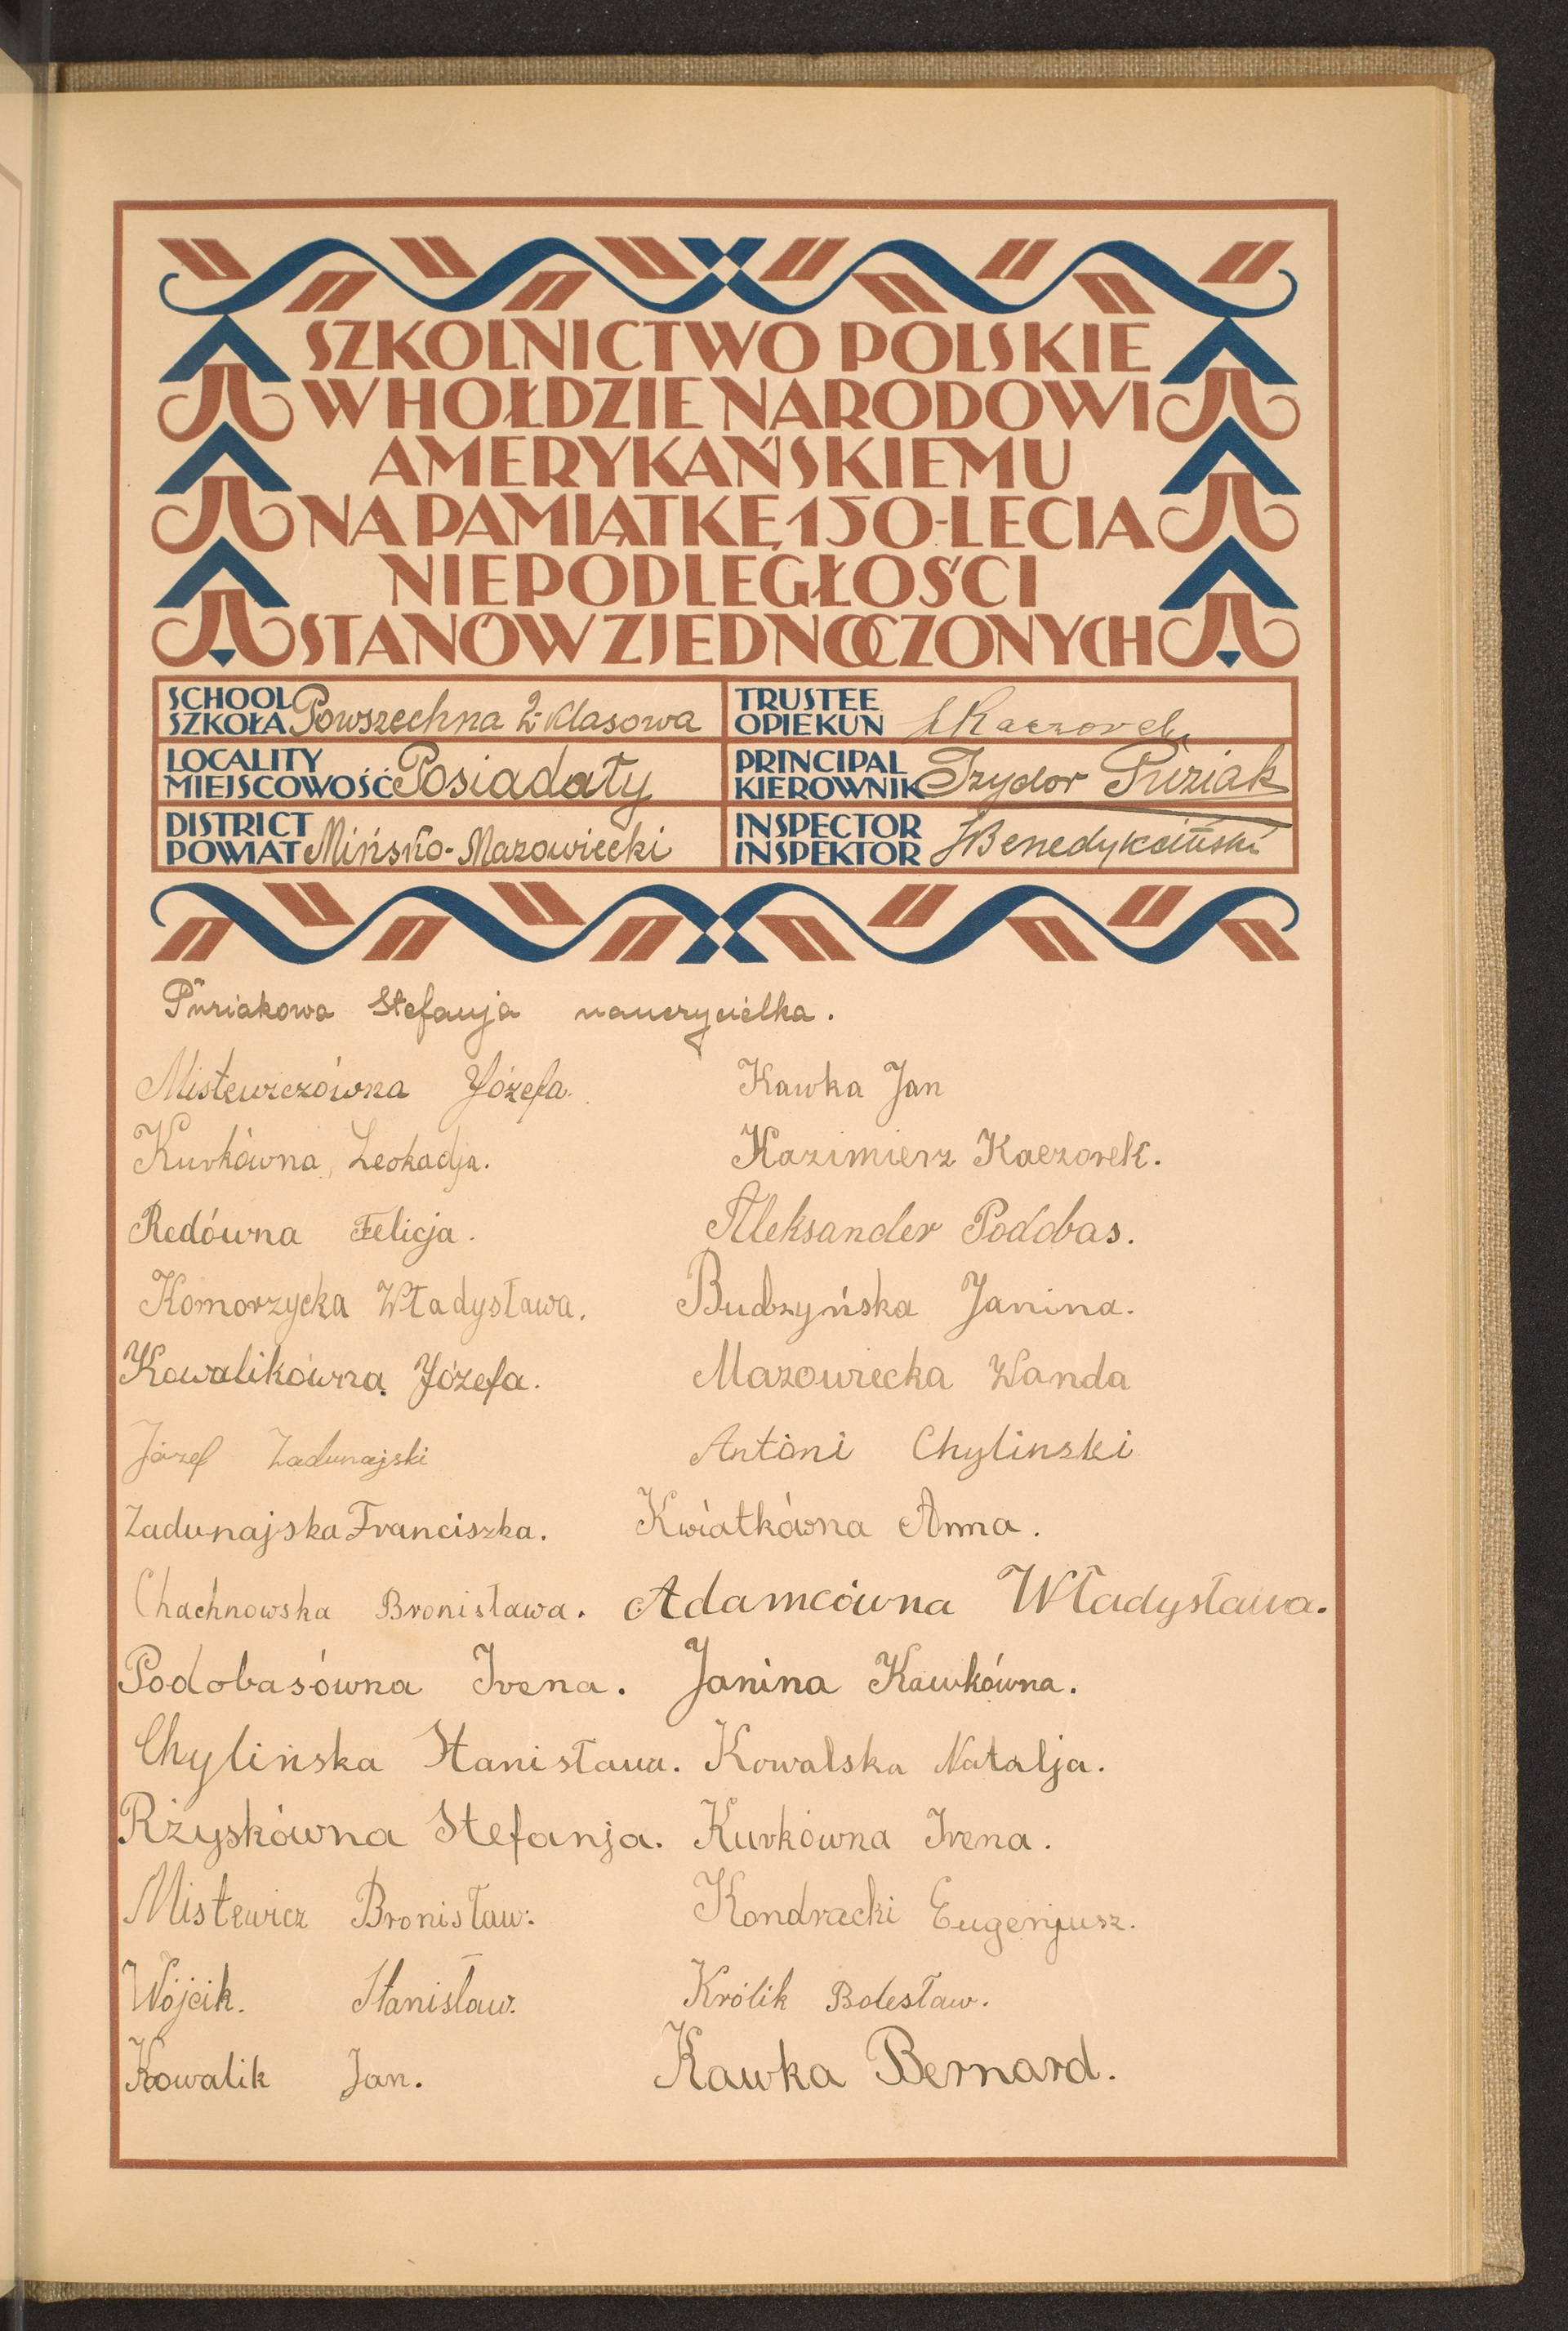 SZKOLNICTWO POLSKIE
W HOŁDZIE NARODOWI
AMERYKAŃSKIEMU
NA PAMIĄTKĘ 150-LECIA
NIEPODLEGŁOŚCI
STANÓW ZJEDNOCZONYCH
SCHOOL
SZKOŁA Powszechna 2-klasowa
TRUSTEE
OPIEKUN Kaczorek
LOCALITY
MIEJSCOWOŚĆ Posiadały
PRINCIPAL
KIEROWNIK Izydor Puziak
DISTRICT
POWIAT Mińsko-Mazowiecki
INSPECTOR
INSPEKTOR
Puziakowa Stefanja nauczycielka.
Mistewiczówna Józefa.
Kurkówna, Leokadja.
Redówna Felicja.
Komorzycka Władysława.
Kowalikówna Józefa.
Józef Zadunajski
Zadunajska Franciszka.
Chachnowska Bronisława.
Podobasówna Irena.
Chylińska Stanisława.
Rżyskówna Stefanja.
Mistewicz Bronisław.
Wójcik. Stanisław.
Kowalik Jan.
Kawka Jan
Kazimierz Kaczorek.
Aleksander Podobas.
Budzyńska Janina.
Mazowiecka Wanda
Antoni Chylinski
Kwiatkówna Anna.
Adamcówna Władysława.
Janina Kawkówna.
Kowalska Natalja.
Kurkówna Irena.
Kondracki Eugenjusz.
Królik Bolesław.
Kawka Bernard.